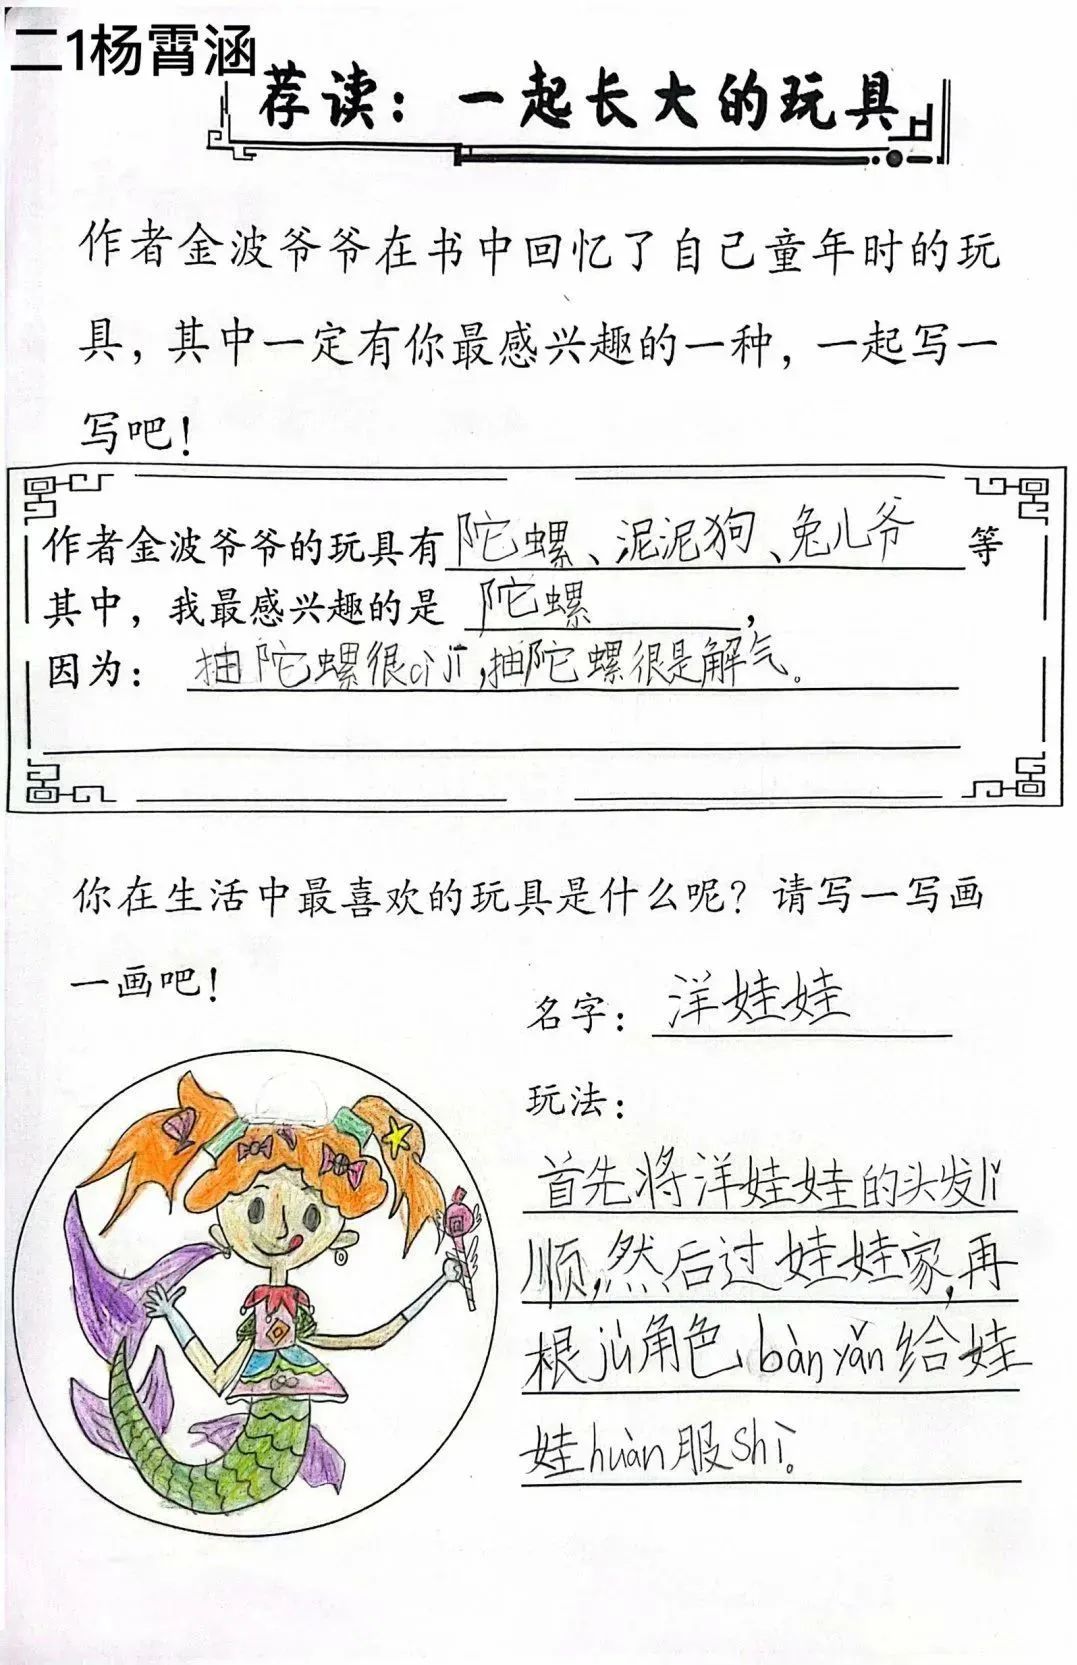 二1杨霄涵
荐读：一起长大的玩具
作者金波爷爷在书中回忆了自己童年时的玩
具，其中一定有你最感兴趣的一种，一起写一
写吧！
作者金波爷爷的玩具有陀螺、泥泥狗、兔儿爷等
其中，我最感兴趣的是陀螺，
因为：抽陀螺很cìjī，抽陀螺很是解气。
你在生活中最喜欢的玩具是什么呢？请写一写画
一画吧！
名字：洋娃娃
玩法：
首先将洋娃娃的头发lǐ
顺，然后过娃娃家，再
根jù角色bànyǎn给娃
娃huàn服shì。